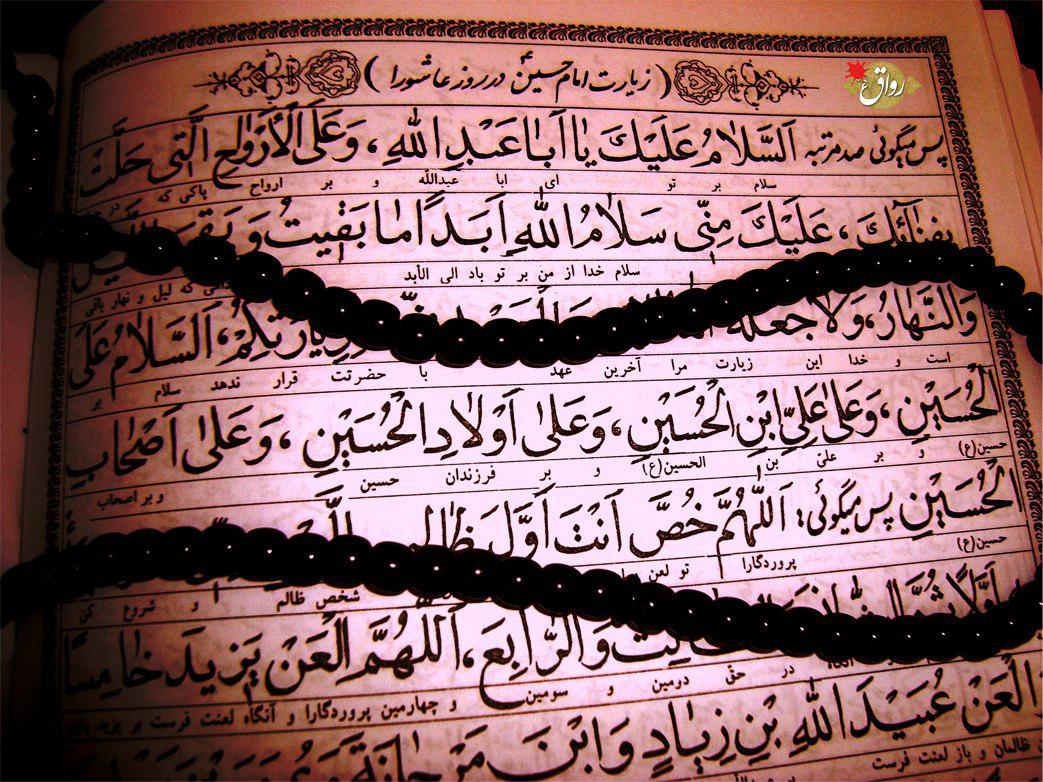 ( زیارت امام حسین ع در روز عاشورا )
رواق
پس میگوئی صد مرتبه اَلسَّلامُ عَلَیْكَ یا اَبا عَبْدِ اللهِ، وَعَلَى الْأَرْواحِ الَّتی حَلَّتْ
سلام بر تو ای ابا عبدالله و بر ارواح پاکی که در
بِفِنائِكَ، عَلَیْكَ مِنّی سَلامُ اللهِ اَبَدًا ما بَقیتُ وَ بَقِیَ
سلام خدا از من بر تو باد الی الأبد که لیل و نهار باقی
وَالنَّهارُ، وَلا جَعَلَهُ لِزِیارَتِکُمْ، اَلسَّلامُ عَلَى
است و خدا این زیارت مرا آخرین عهد با حضرتت قرار ندهد سلام بر
الْحُسَیْنِ، وَعَلى عَلِیِّ ابْنِ الْحُسَیْنِ، وَعَلى اَوْلادِ الْحُسَیْنِ، وَعَلى اَصْحابِ
حسین(ع) و بر علیّ بن الحسین(ع) و بر فرزندان حسین و بر اصحاب
الْحُسَیْنِ پس میگوئی: اَللّهُمَّ خُصَّ اَنْتَ اَوَّلَ ظالِمٍ
حسین(ع) پروردگارا تو لعن شخص ظالم و شروع کن
اَوَّلًا ثُمَّ
در حقّ دومین و سومین و چهارمین پروردگارا و آنگاه لعنت فرست بر یزید پنجم
وَالرّابِعَ، اَللّهُمَّ الْعَنْ یَزیدَ خامِسًا
الْعَنْ عُبَیْدَ اللهِ بْنِ زِیادٍ وَابْنَ مَرْجانَةَ
ظالمان و باز لعنت فرست